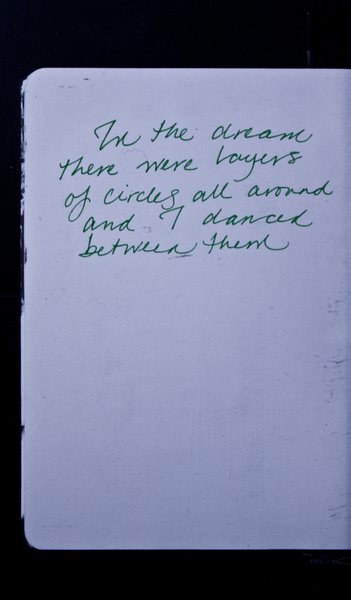 In the dream
there were layers
of circles all around
and I danced
between them